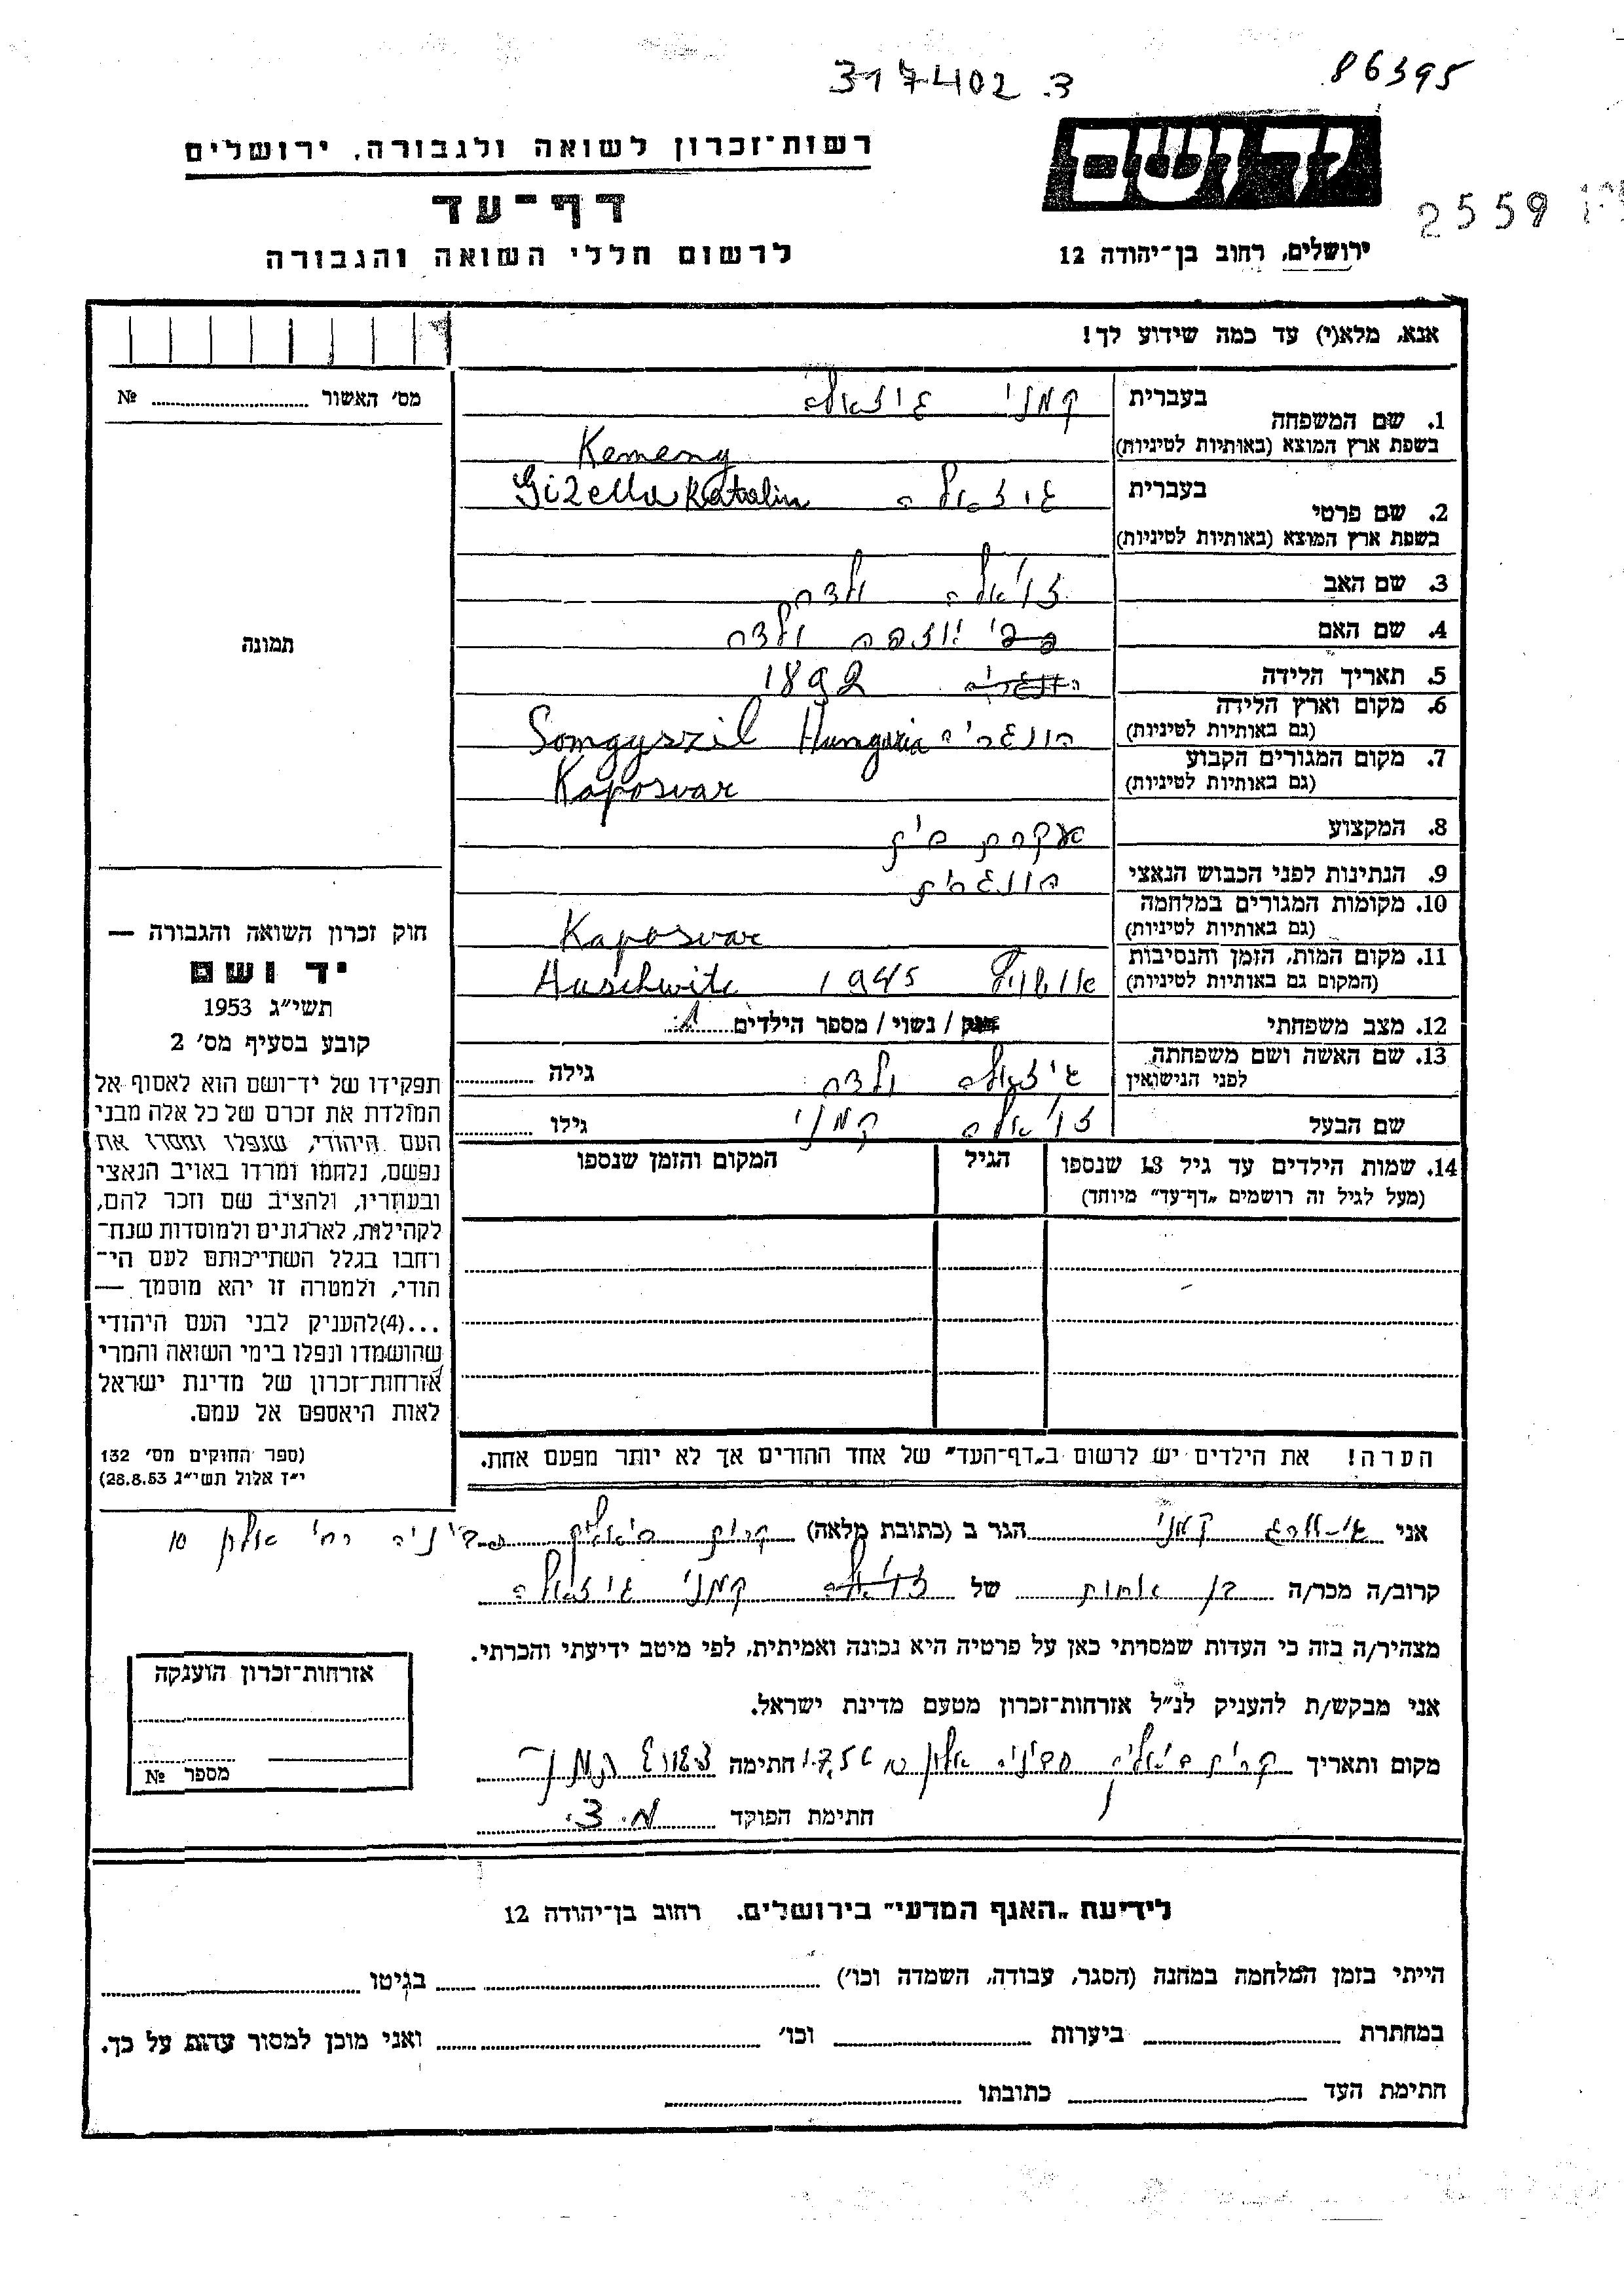 317402 .3
86395
רשות־זכרון לשואה ולגבורה, ירושלים
יד ושם
דף־עד
2559
לרשום חללי השואה והגבורה
ירושלים, רחוב בן־יהודה 12
אנא, מלא(י) עד כמה שידוע לך!
מס׳ האשור № 
1. שם המשפחה
בעברית קמני גיזאלה
בשפת ארץ המוצא (באותיות לטיניות) Kemeny
2. שם פרטי
בעברית גיזאלה Gizella Katalin
בשפת ארץ המוצא (באותיות לטיניות)
3. שם האב
4. שם האם
5. תאריך הלידה 1892
6. מקום וארץ הלידה
(גם באותיות לטיניות) הונגריה Hungaria Somgyszil
7. מקום המגורים הקבוע
(גם באותיות לטיניות) Kaposvar
8. המקצוע עקרת בית
9. הנתינות לפני הכבוש הנאצי הונגרית
10. מקומות המגורים במלחמה
(גם באותיות לטיניות) Kaposvar
11. מקום המות, הזמן והנסיבות
(המקום גם באותיות לטיניות) אושויץ 1945 Auschwitz
12. מצב משפחתי רווק / נשוי / מספר הילדים
13. שם האשה ושם משפחתה
לפני הנישואין גיזאלה גילה
שם הבעל קמני גילו
14. שמות הילדים עד גיל 18 שנספו
(מעל לגיל זה רושמים „דף־עד” מיוחד)
הגיל
המקום והזמן שנספו
הערה! את הילדים יש לרשום ב„דף־העד” של אחד ההורים אך לא יותר מפעם אחת.
תמונה
חוק זכרון השואה והגבורה —
יד ושם
תשי״ג 1953
קובע בסעיף מס׳ 2
תפקידו של יד־ושם הוא לאסוף אל
המולדת את זכרם של כל אלה מבני
העם היהודי, שנפלו ומסרו את
נפשם, נלחמו ומרדו באויב הנאצי
ובעוזריו, ולהציב שם וזכר להם,
לקהילות, לארגונים ולמוסדות שנח־
רחבו בגלל השתייכותם לעם הי־
הודי, ולמטרה זו יהא מוסמך —
...(4)להעניק לבני העם היהודי
שהושמדו ונפלו בימי השואה והמרי
אזרחות־זכרון של מדינת ישראל
לאות היאספם אל עמם.
(ספר החוקים מס׳ 132
י״ז אלול תשי״ג 28.8.53)
אני קמני הגר ב (כתובת מלאה) קרית ביאליק סביניה רח׳ אלון 10
קרוב/ה מכר/ה בן אחות של קמני גיזאלה
מצהיר/ה בזה כי העדות שמסרתי כאן על פרטיה היא נכונה ואמיתית, לפי מיטב ידיעתי והכרתי.
אני מבקש/ת להעניק לנ״ל אזרחות־זכרון מטעם מדינת ישראל.
מקום ותאריך קרית ביאליק סביניה אלון 10 1.7.56 חתימה
חתימת הפוקד
אזרחות־זכרון הוענקה
מספר №
לידיעת „האגף המדעי” בירושלים, רחוב בן־יהודה 12
הייתי בזמן המלחמה במחנה (הסגר, עבודה, השמדה וכו׳) בגיטו
במחתרת ביערות וכו׳ ואני מוכן למסור עדות על כך.
חתימת העד כתובתו